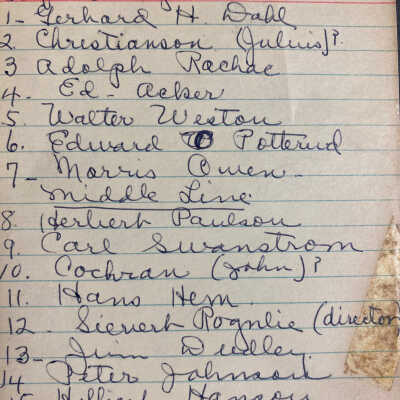 1- Gerhard H. Dahl
2. Christianson (Julius)?
3 Adolph Rachac
4. Ed - Acker
5. Walter Weston
6. Edward O Potterud
7- Morris Owen -
Middle Line
8. Herbert Paulson
9. Carl Swanstrom
10. Cochran (John)?
11. Hans Hem
12. Sievert Rognlie (director)
13- Jim Dudley.
14 Peter Johnson
15 Hanson